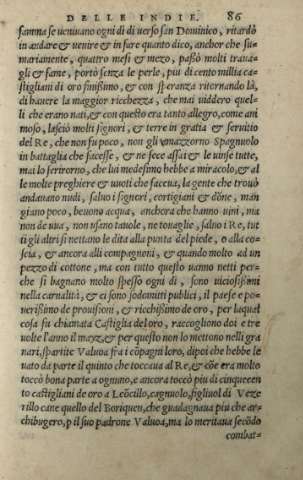 DELLE INDIE. 86
famma se ueniuano ogni dì di uerso san Dominico, ritardò
in andare & uenire & in fare quanto dico, anchor che su-
mariamente, quattro mesi & mezo, passò molti traua-
gli & fame, portò senza le perle, piu di cento millia ca-
stigliani di oro finissimo, & con speranza ritornando là,
di hauere la maggior ricchezza, che mai uiddero quel-
li che erano nati, & con questo era tanto allegro, come ani
moso, lasciò molti signori, & terre in gratia & seruitio
del Re, che non fu poco, non gli amazzorno Spagnuolo
in battaglia che facesse, & ne fece assai & le uinse tutte,
mai lo ferirorno, che lui medesimo hebbe a miracolo, & al
le molte preghiere & uuoti che faceua, la gente che trouò
andauano nudi, saluo i signori, cortigiani & dõne, man
giano poco, beuono acqua, anchora che hanno uini, ma
non de uua, non usano tauole, ne touaglie, saluo i Re, tut
ti gli altri si nettano le dita alla punta del piede, o alla co-
scia, & ancora alli compagnoni, & quando molto ad un
pezzo di cottone, ma con tutto questo uanno netti per-
che si bagnano molto spesso ogni dì, sono uiciosissimi
nella carnalità, & ci sono sodomitti publici, il paese e po-
uerissimo de prouisioni, & ricchissimo de oro, per laqual
cosa fu chiamata Castiglia del oro, raccogliono doi e tre
uolte l'anno il mayz, & per questo non lo mettono nelli gra
nari, spartite Valuoa fra i cõpagni loro, dipoi che hebbe le
uato da parte il quinto che toccaua al Re, & cõe era molto
toccò bona parte a ogniuno, e ancora toccò piu di cinquecen
to castigliani de oro a Leõcillo, cagnuolo, figliuol di Veze
rillo cane quello del Boriquen, che guadagnaua piu che ar-
chibugero, p il suo padrone Valuoa, ma lo meritaua secõdo
combat-